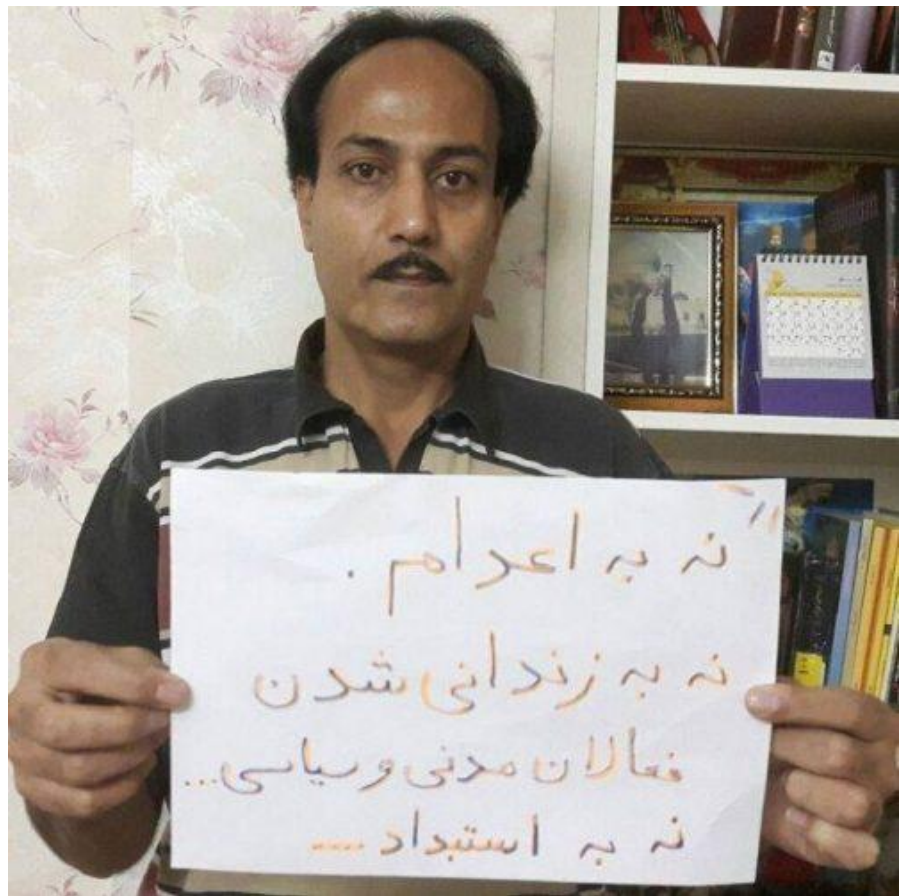 "نه به اعدام.
نه به زندانی شدن
فعالان مدنی و سیاسی...
نه به استبداد....